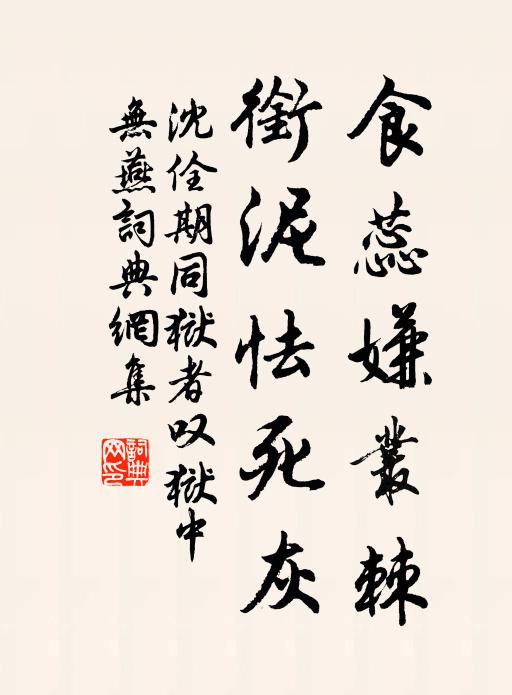 食蕊嫌叢棘
銜泥怯死灰
沈佺期同獄者叹獄中
無燕詞典網集
詞典
网印